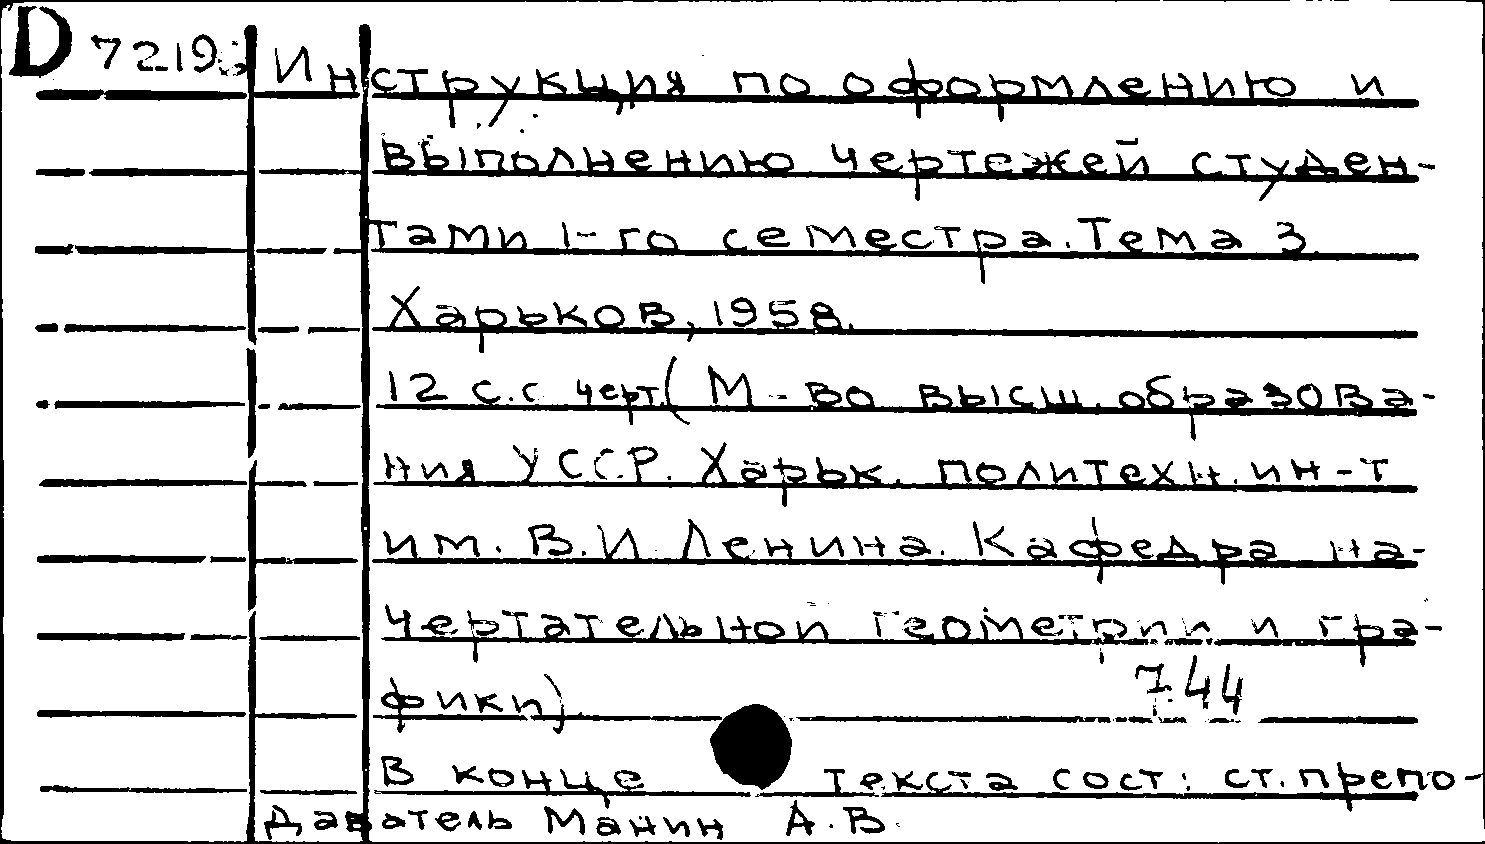 D 7219 Инструкция по оформлению и
выполнению чертежей студен-
тами 1-го семестра. Тема 3.
Харьков, 1958.
12 с. с черт. (М-во высш. образова-
ния УССР. Харьк. политехн. ин-т
им. В.И. Ленина. Кафедра на-
чертательной геометрии и гра-
фики).
744
В конце текста сост: ст. препо-
даватель Манин А.В.